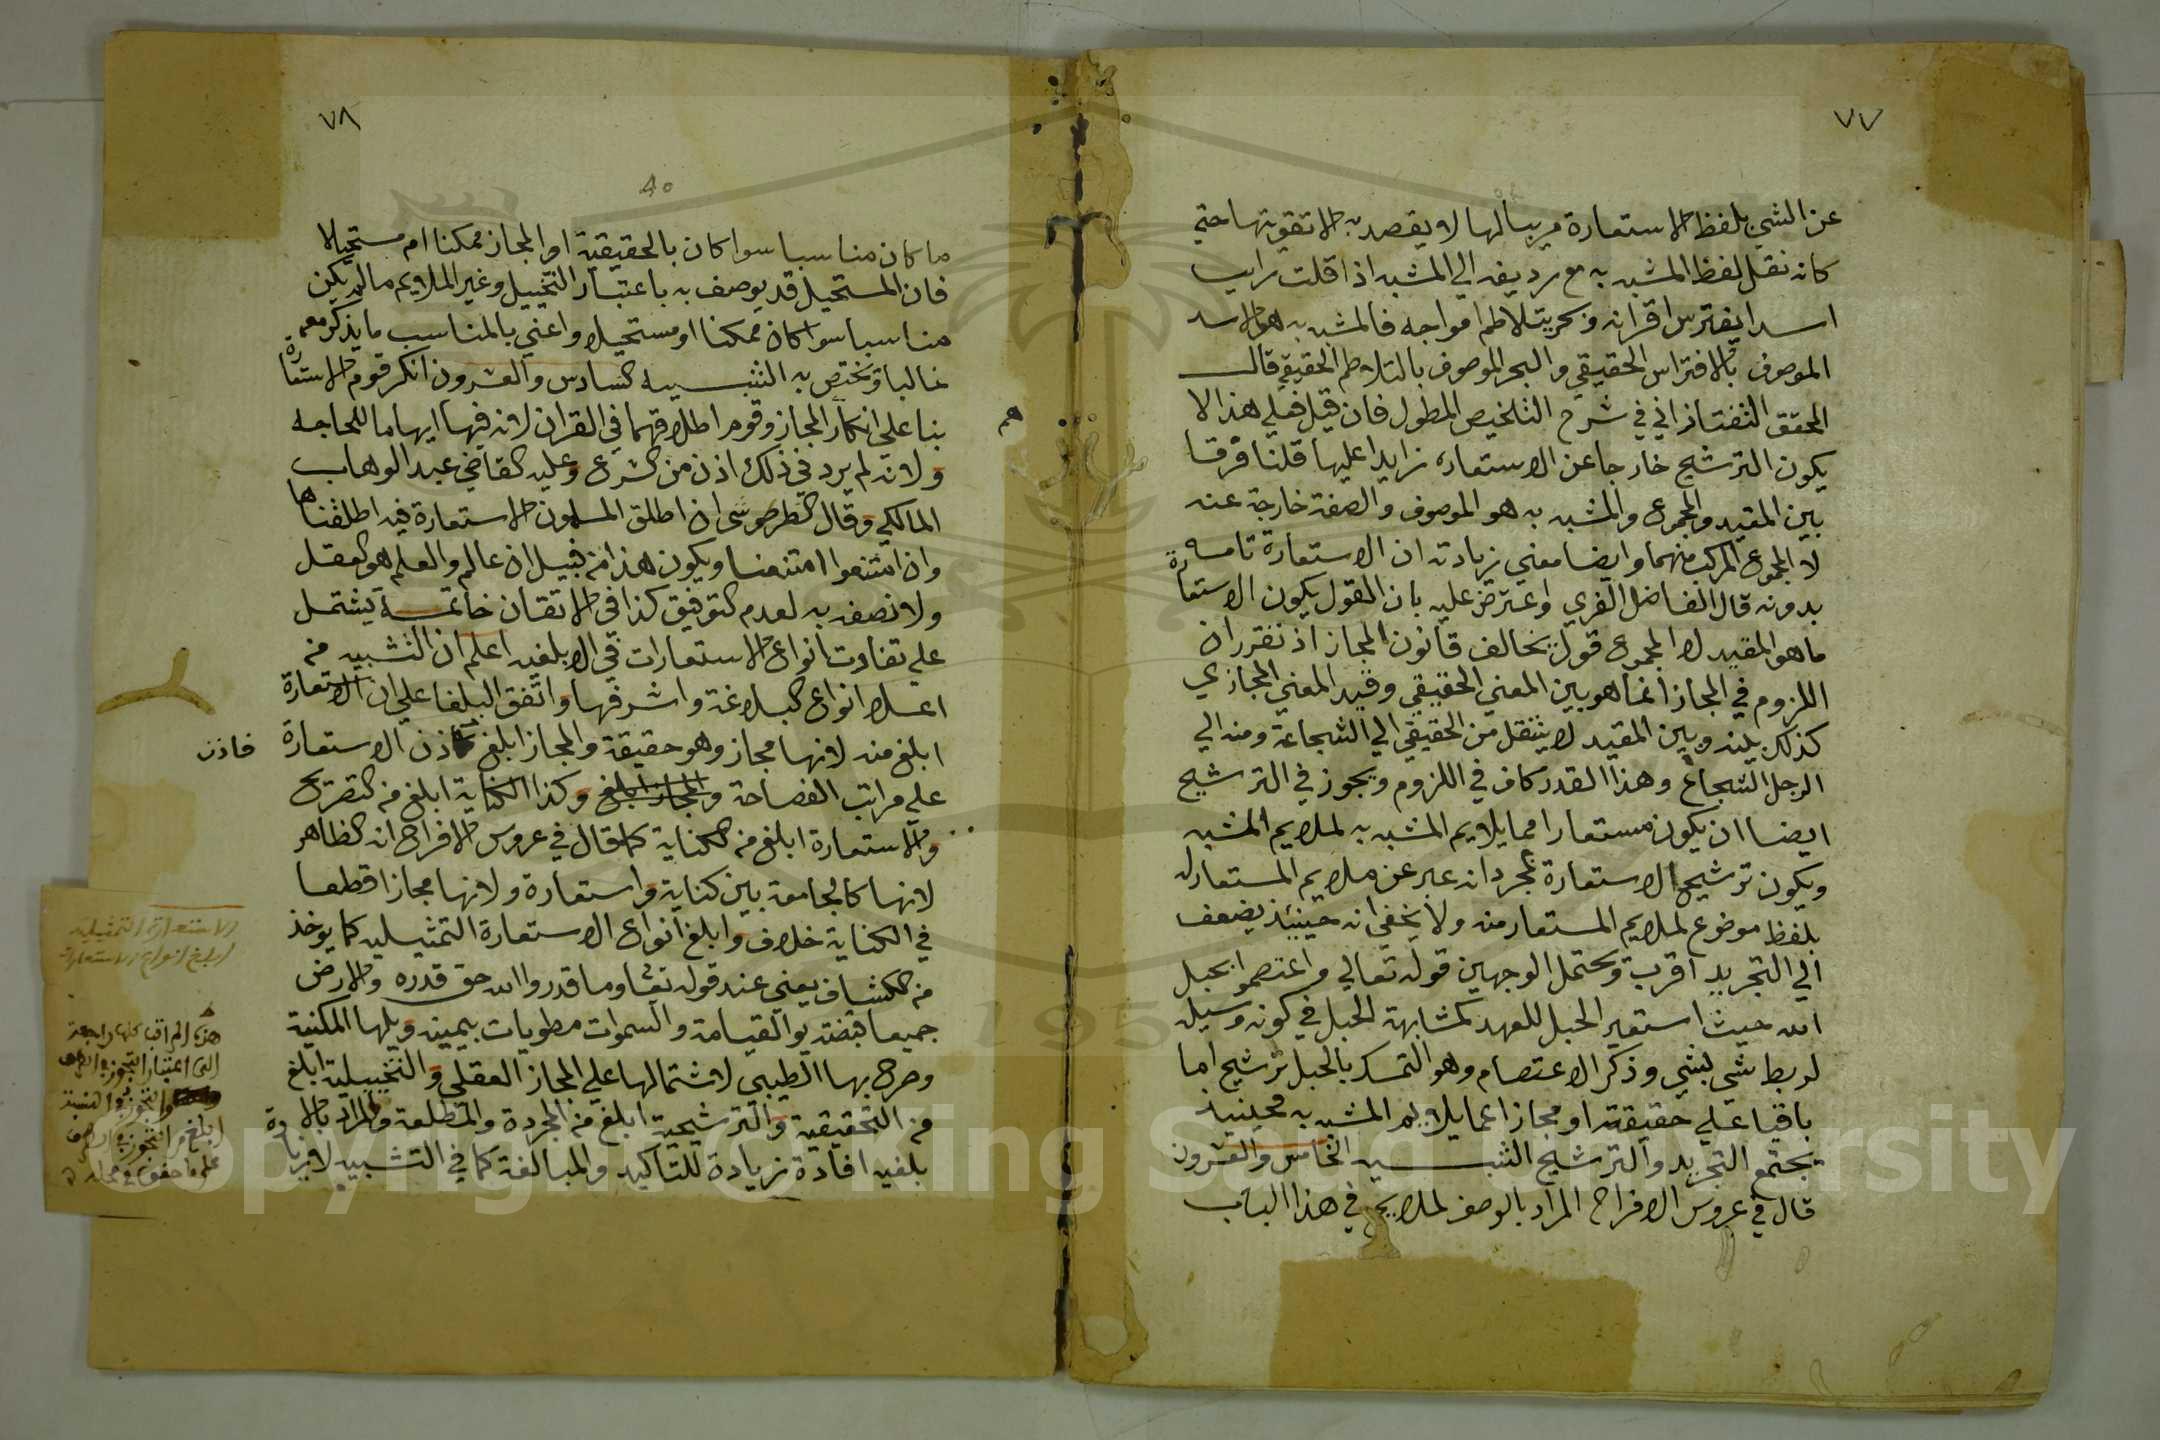 ٧٧
عن الشي بلفظ الاستعارة مريبا لها لا يقصد به الا تقويتها حتي
كانه نقل لفظ المشبه به مع رديفه الي المشبه اذا قلت رايت
اسدا يفترس اقرانه وبحر يتلاطم امواجه فالمشبه به هو الاسد
الموصوف بالافتراس الحقيقي والبحر الموصوف بالتلاطم الحقيقي قال
المحقق التفتازاني في شرح التلخيص المطول فان قيل فعلي هذا لا
يكون الترشيح خارجا عن الاستعارة زايدا عليها قلنا فرقا
بين المقيد والمجموع والمشبه به هو الموصوف والصفة خارجة عنه
لا المجموع المركب منهما وايضا معني زيادته ان الاستعارة تامة
بدونه قال الفاضل الفري واعترض عليه بان القول يكون الاستعارة
ما هو المقيد لا المجموع قول يخالف قانون المجاز اذ تقرر ان
اللزوم في المجاز انما هو بين المعني الحقيقي وقيد المعني المجازي
كذلك بينه وبين المقيد لا ينتقل من الحقيقي الي الشجاعة ومنه الي
الرجل الشجاع وهذا القدر كاف في اللزوم ويجوز في الترشيح
ايضا ان يكون مستعارا مما يلايم المشبه به لملايم المشبه
ويكون ترشيح الاستعارة بمجرد انه عبر عن ملايم المستعار له
بلفظ موضوع لملايم المستعار منه ولا يخفي انه حينئذ يضعف
الي التجريد اقرب ويحتمل الوجهين قوله تعالي واعتصموا بحبل
الله حيث استعير الحبل للعهد لمشابهة الحبل في كونه وسيلة
لربط شي بشي وذكر الاعتصام وهو التمسك بالحبل ترشيح اما
باقيا علي حقيقته او مجازا عما يلايم المشبه به فحينيذ
يجتمع التجريد والترشيح التنبيه الخامس والعشرون
قال في عروس الافراح المراد بالوصف لملايم في هذا الباب
٧٨
٤٥
ما كان مناسبا سوا كان بالحقيقة او المجاز ممكنا ام مستحيلا
فان المستحيل قد يوصف به باعتبار التخييل وغير الملايم ما لم يكن
مناسبا سوا كان ممكنا او مستحيلا واعني بالمناسب ما يذكر معه
غالبا ويختص به التنبيه السادس والعشرون انكر قوم الاستعارة
بنا علي انكار المجاز وقوم اطلاقهما في القران لان فيها ايهاما للحاجه
ولانه لم يرد في ذلك اذن من الشرع وعليه القاضي عبد الوهاب
المالكي وقال الطرطوشي ان اطلق المسلمون الاستعارة فيه اطلقناها
وان امتنعوا امتنعنا ويكون هذا من قبيل ان عالم والعلم هو العقل
ولا نصفه به لعدم التوفيق كذا في الاتقان خاتمة يشتمل
علي تفاوت انواع الاستعارات في الابلغيه اعلم ان التشبيه من
اعلا انواع البلاغة واشرفها واتفق البلغا علي ان الاستعارة
ابلغ منه لانها مجاز وهو حقيقة والمجاز ابلغ فاذن الاستعارة
فاذن
علي مراتب الفصاحة والمجاز ابلغ وكذا الكناية ابلغ من التصريح
والاستعارة ابلغ من الكناية كما قال في عروس الافراح انه الظاهر
لانها كالجامعة بين كناية واستعارة ولانها مجازا قطعا
في الكناية خلاف وابلغ انواع الاستعارة التمثيليه كما يوخذ
من الكشاف يعني عند قوله تعا وما قدروا الله حق قدره والارض
جميعا قبضته يوم القيامة والسموات مطويات بيمينه ويليها المكنية
وصرح بها الطيبي لاشتمالها علي المجاز العقلي والتخييلية ابلغ
من التحقيقية والترشيحية ابلغ من المجردة والمطلقة والمراد بالا
بلغيه افادة زيادة للتاكيد والمبالغة كما في التشبيه لا زيادة
الاستعارة التمثيليه
ابلغ انواع الاستعارات
هذه المراتب كلها راجعة
الى اعتبار التجوز